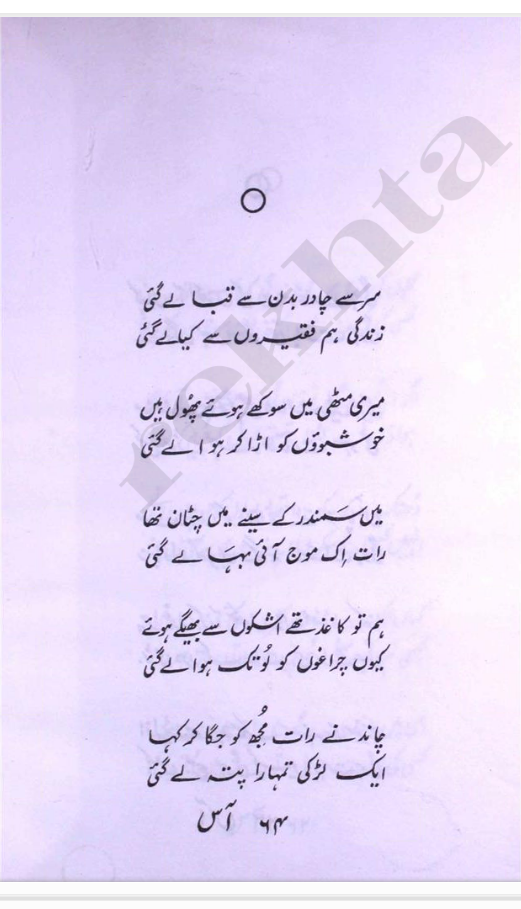 سر سے چادر بدن سے قبا لے گئی
زندگی ہم فقیروں سے کیا لے گئی
میری مٹھی میں سوکھے ہوئے پھُول ہیں
خوشبوؤں کو اڑا کر ہوا لے گئی
میں سَمندر کے سینے میں چٹان تھا
رات اِک موج آئی بہَا لے گئی
ہم تو کاغذ تھے اشکوں سے بھیگے ہوئے
کیوں چراغوں کو لَو تک ہوا لے گئی
چاند نے رات مُجھ کو جگا کر کہا
ایک لڑکی تمہارا پتہ لے گئی
۶۴ آس
rekhta